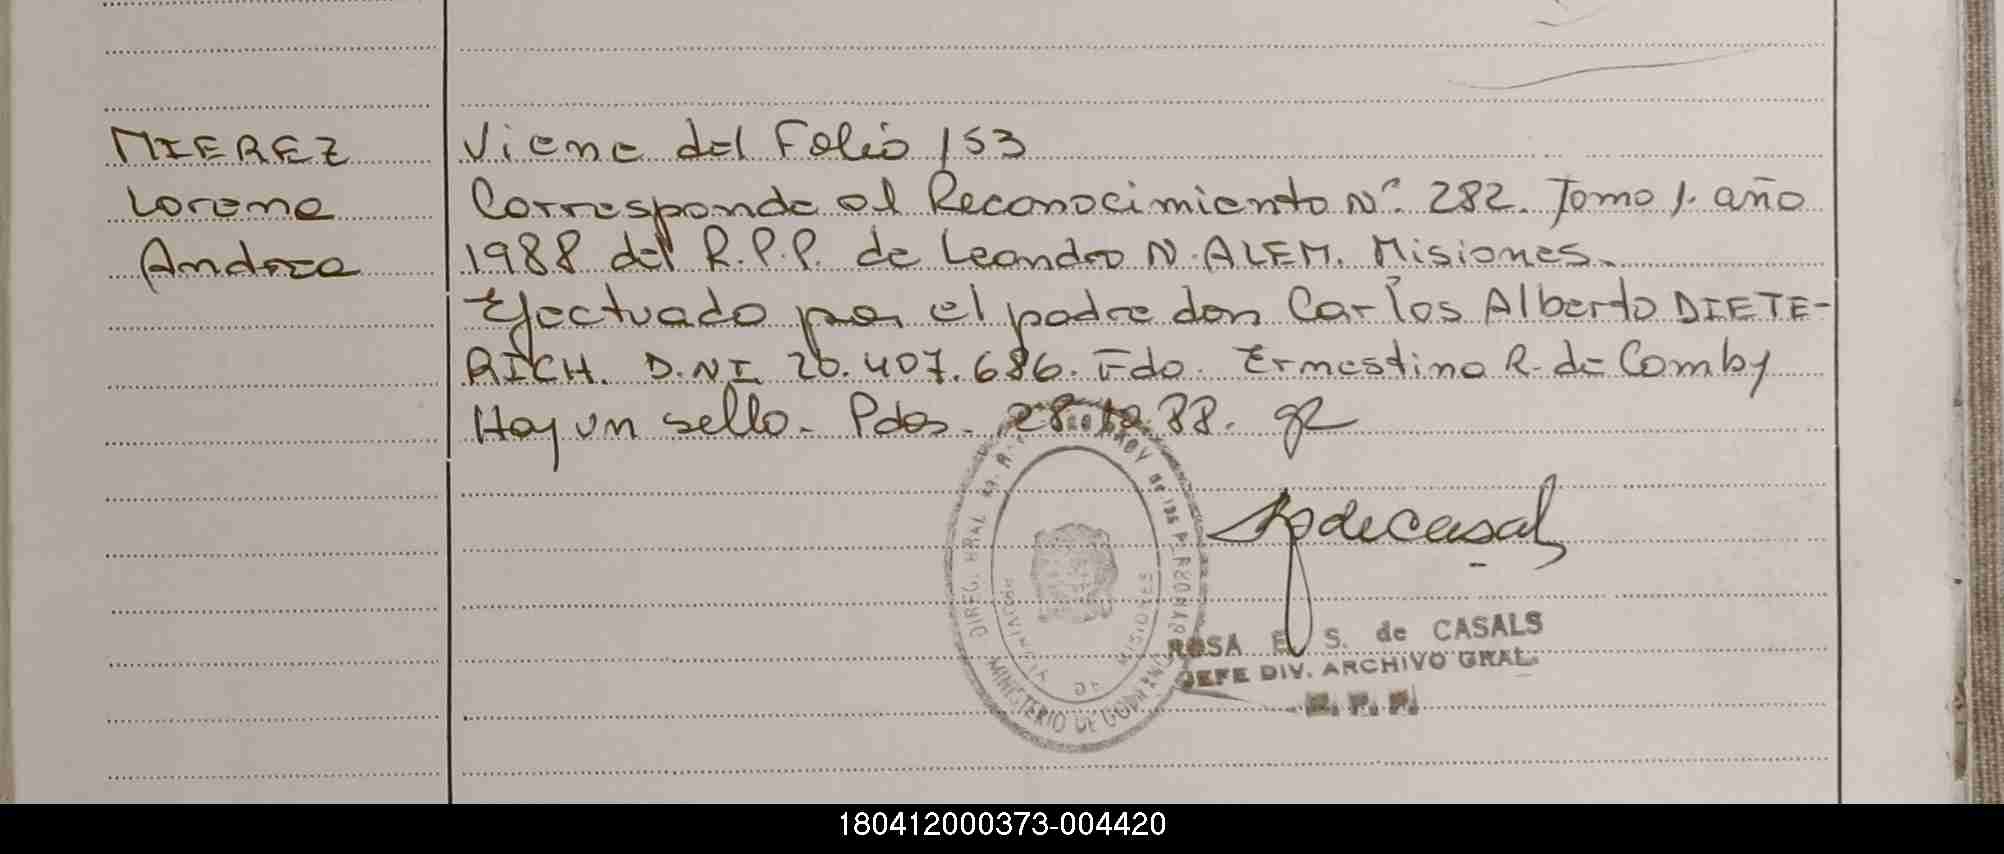 MIEREZ
Lorena
Andrea
Viene del Folio 153
Corresponde al Reconocimiento N° 282. Tomo 1. año
1988 del R.P.P. de Leandro N. ALEM. Misiones.
Efectuado por el padre don Carlos Alberto DIETE-
RICH. D.NI 20.407.686. Fdo. Ernestina R. de Comby
Hay un sello. Pdas. 28.12.88.
MINISTERIO DE GOBIERNO
PROVINCIA DE MISIONES
ROSA E. S. de CASALS
JEFE DIV. ARCHIVO GRAL.
R. P. P.
180412000373-004420